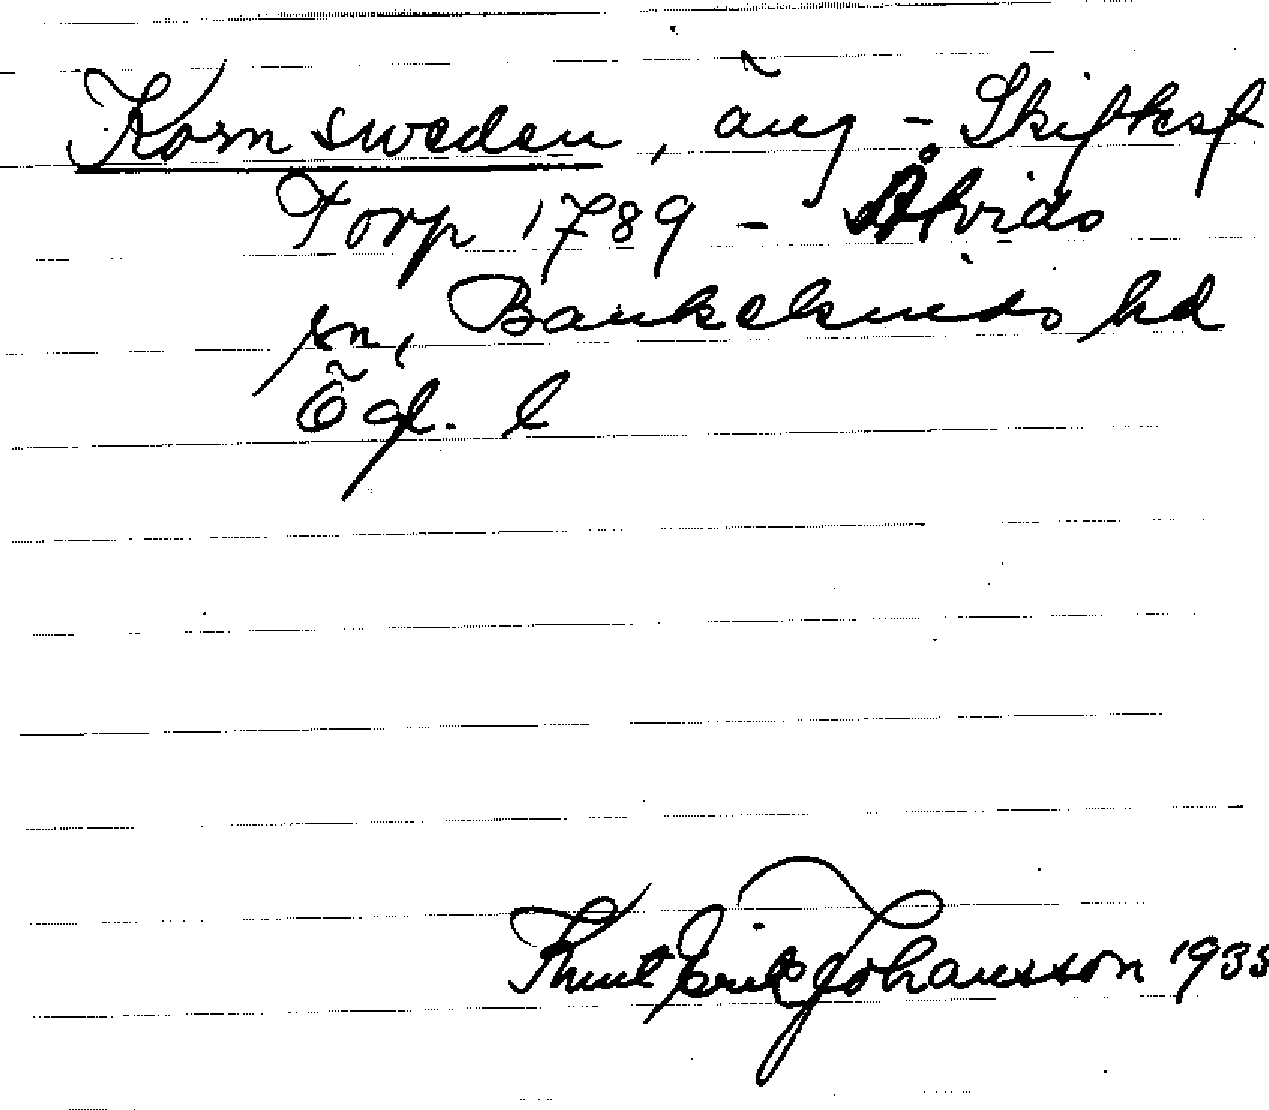 Kornsweden, äng - Skiftksf
Torp 1789 - Åtvids
sn, Bankekinds hd
Ögl. l
Knut Erik Johansson 1933